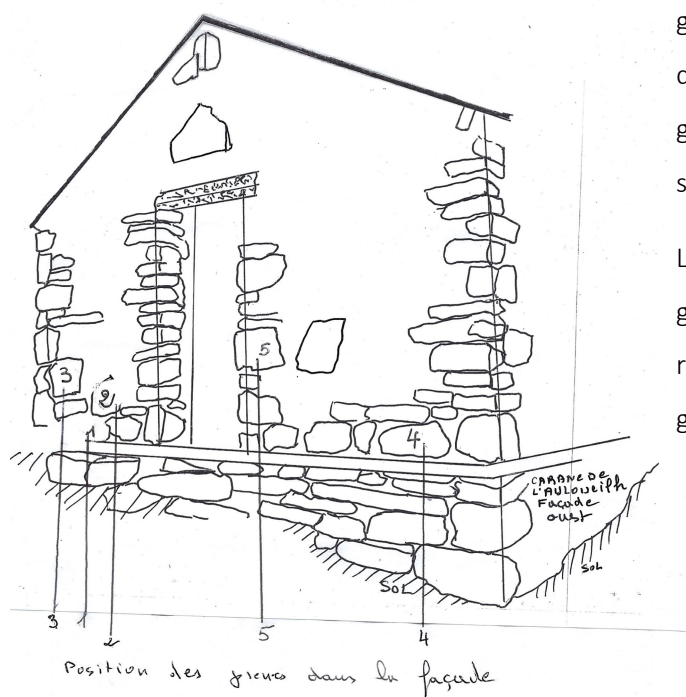 g
c
g
s
L
g
r
g
3
2
1
5
4
CABANE DE
L'AULOUEILH
Façade
ouest
SOL
SOL
3
1
2
5
4
Position des pierres dans la façade